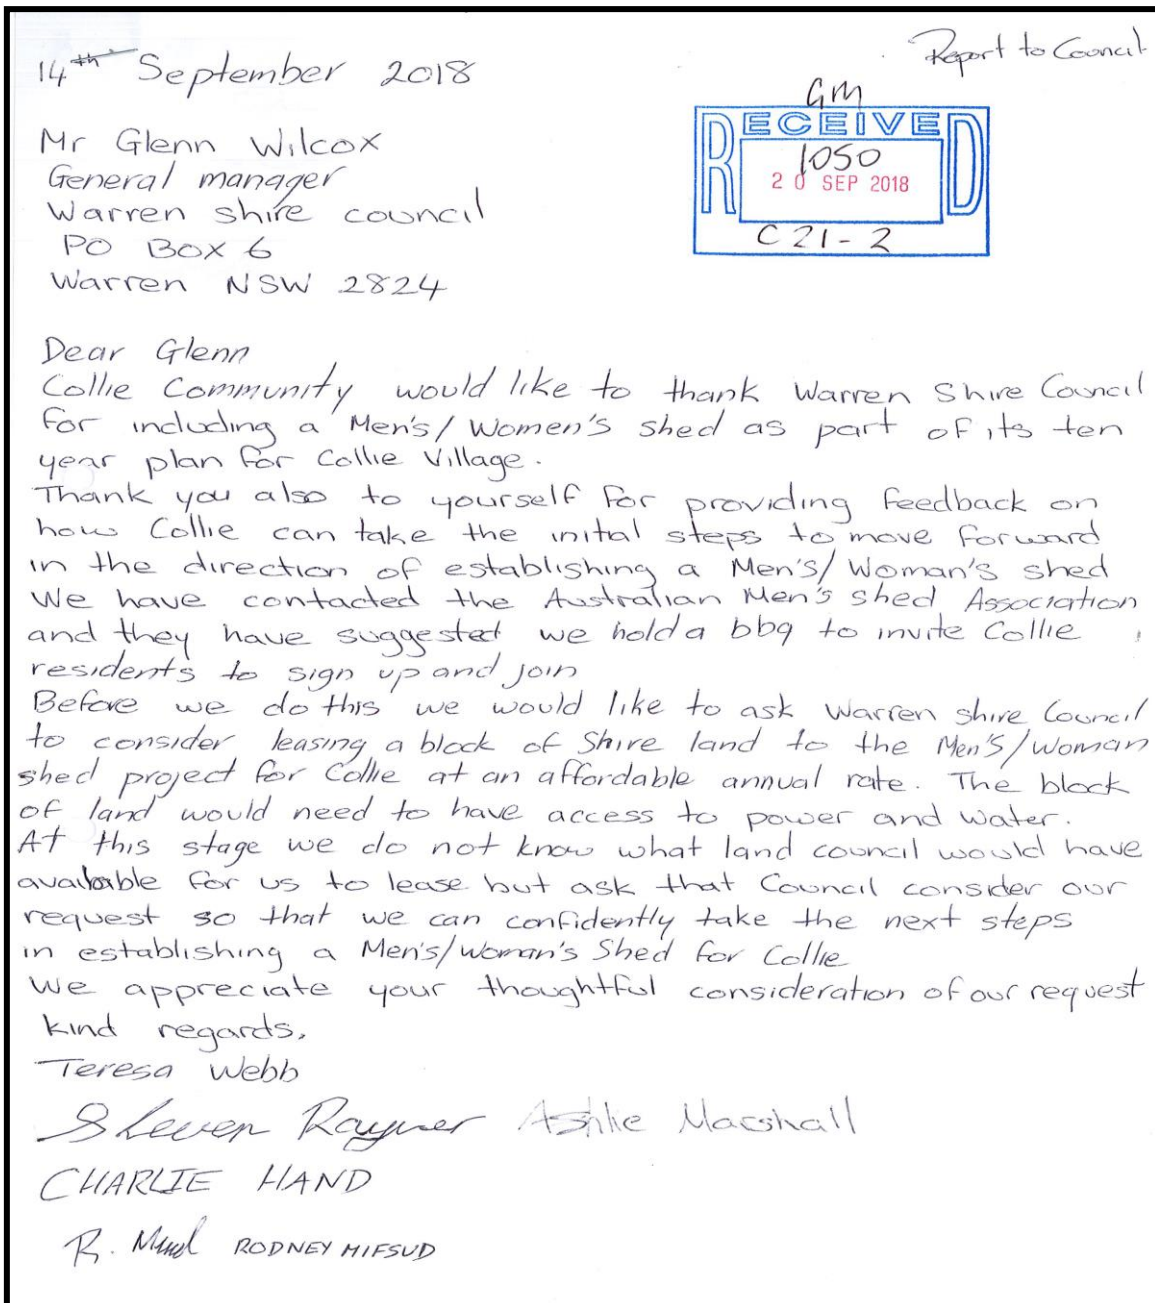 Report to Council
14th September 2018
GM
RECEIVED
1050
20 SEP 2018
C21-2
Mr Glenn Wilcox
General manager
Warren shire council
PO Box 6
Warren NSW 2824
Dear Glenn
Collie Community would like to thank Warren Shire Council
for including a Men's/Women's shed as part of its ten
year plan for Collie Village.
Thank you also to yourself for providing feedback on
how Collie can take the inital steps to move forward
in the direction of establishing a Men's/Woman's shed
We have contacted the Australian Men's shed Association
and they have suggested we hold a bbq to invite Collie
residents to sign up and join
Before we do this we would like to ask Warren shire Council
to consider leasing a block of Shire land to the Men's/Woman
shed project for Collie at an affordable annual rate. The block
of land would need to have access to power and water.
At this stage we do not know what land council would have
available for us to lease but ask that Council consider our
request so that we can confidently take the next steps
in establishing a Men's/Woman's Shed for Collie
We appreciate your thoughtful consideration of our request
kind regards,
Teresa Webb
Steven Rayner Ashlie Marshall
CHARLIE HAND
R. RODNEY MIFSUD